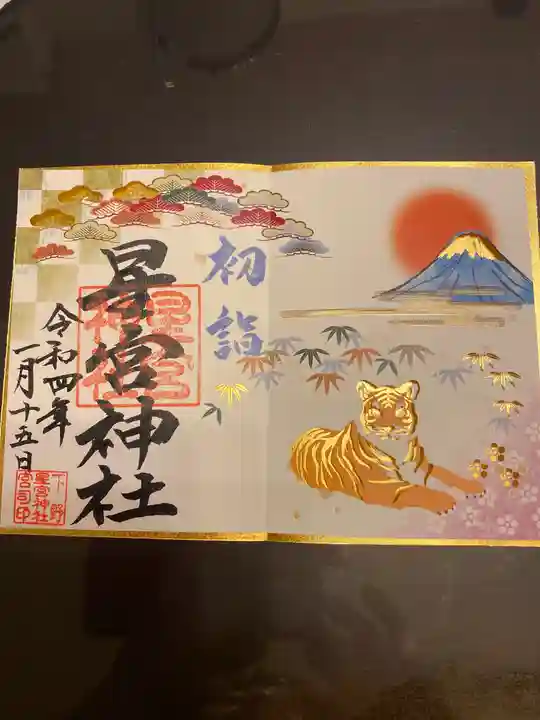 初詣
星宮神社
令和四年
一月十五日
下野
星宮神社
宮司印